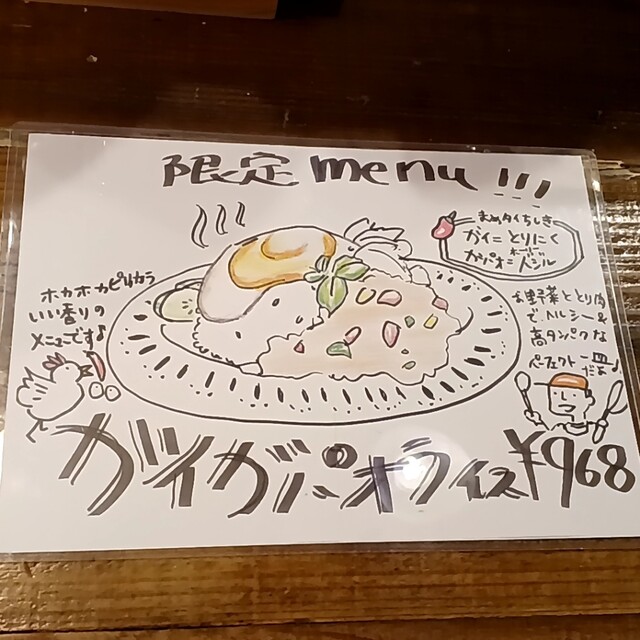 限定menu!!!
まめタイちしき
ガイ=とりにく
ガパオ=ホーリーバジル
ホカホカピリカラ
いい香りの
メニューです♪
お野菜ととり肉
で、ヘルシー&
高タンパクな
パーフェクト一皿
だよ♪
ガイガパオライス¥968